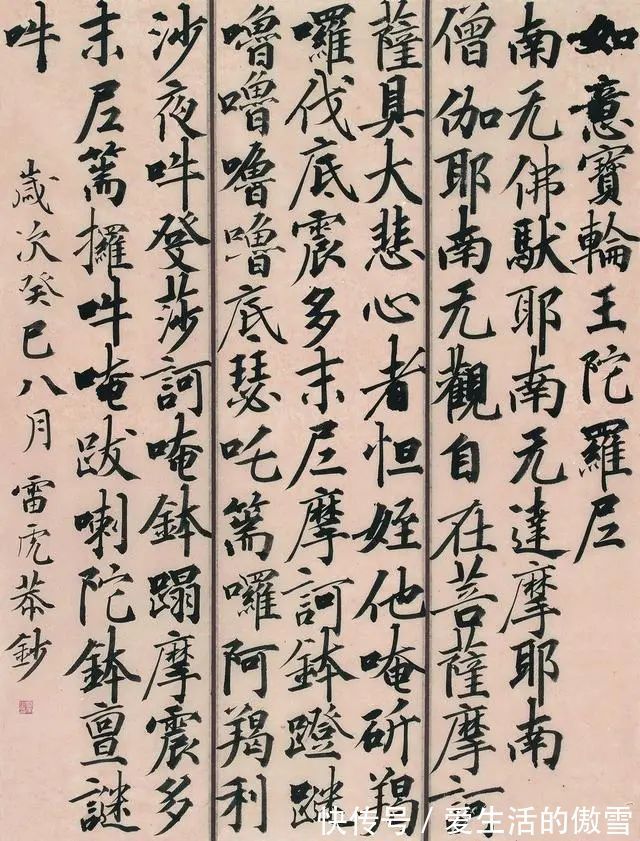 如意寶輪王陀羅尼
南无佛馱耶南无達摩耶南
僧伽耶南无觀自在菩薩摩訶
薩具大悲心者怛姪他唵斫羯
囉伐底震多末尼摩訶鉢蹬
嚕嚕嚕嚕底瑟吒篅囉阿羯利
沙夜吽發莎訶唵鉢蹋摩震多
末尼篅攞吽唵跋喇陀鉢亶謎
吽
歲次癸巳八月雷虎恭鈔
快传号 / 爱生活的傲雪